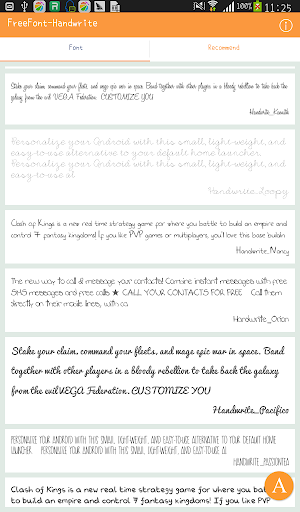 11:25
FreeFont-Handwrite
Font
Recommend
Stake your claim, command your fleets, and wage epic war in space. Band together with other players in a bloody rebellion to take back the
galaxy from the evil VEGA Federation. CUSTOMIZE YOU
Handwrite_Kamith
Personalize your Android with this small, light-weight, and
easy-to-use alternative to your default home launcher.
Personalize your Android with this small, light-weight, and
easy-to-use al
Handwrite_Loopy
Clash of Kings is a new real time strategy game for where you battle to build an empire and
control 7 fantasy kingdoms! If you like PVP games or multiplayer, you'll love this base buildin
Handwrite_Nancy
The new way to call & message your contacts! Comine instant messages with free
SMS messages and free calls ★ CALL YOUR CONTACTS FOR FREE Call them
directly on their mobile lines, with ca
Handwrite_Orion
Stake your claim, command your fleets, and wage epic war in space. Band
together with other players in a bloody rebellion to take back the galaxy
from the evilVEGA Federation. CUSTOMIZE YOU
Handwrite_Pacifico
PERSONALIZE YOUR ANDROID WITH THIS SMALL, LIGHT-WEIGHT, AND EASY-TO-USE ALTERNATIVE TO YOUR DEFAULT HOME
LAUNCHER PERSONALIZE YOUR ANDROID WITH THIS SMALL, LIGHT-WEIGHT, AND EASY-TO-USE AL
HANDWRITE_PASSIONTEA
Clash of Kings is a new real time strategy game for where you batt
to build an empire and control 7 fantasy kingdoms! If you like PVP
A